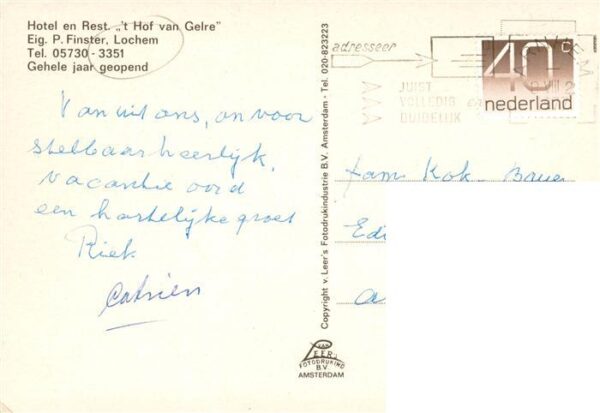 Hotel en Rest. „'t Hof van Gelre"
Eig. P. Finster, Lochem
Tel. 05730 - 3351
Gehele jaar geopend
Van uit ons, on voor
stelbaar heerlijk,
vacantie oord
een hartelijke groet
Riek
Catrien
Copyright v. Leer's Fotodrukindustrie B.V. Amsterdam - Tel. 020-823223
VAN
LEER's
FOTODRUKIND
B.V.
AMSTERDAM
adresseer
JUIST
VOLLEDIG en
DUIDELIJK
40c
nederland
Fam Kok-
Edi